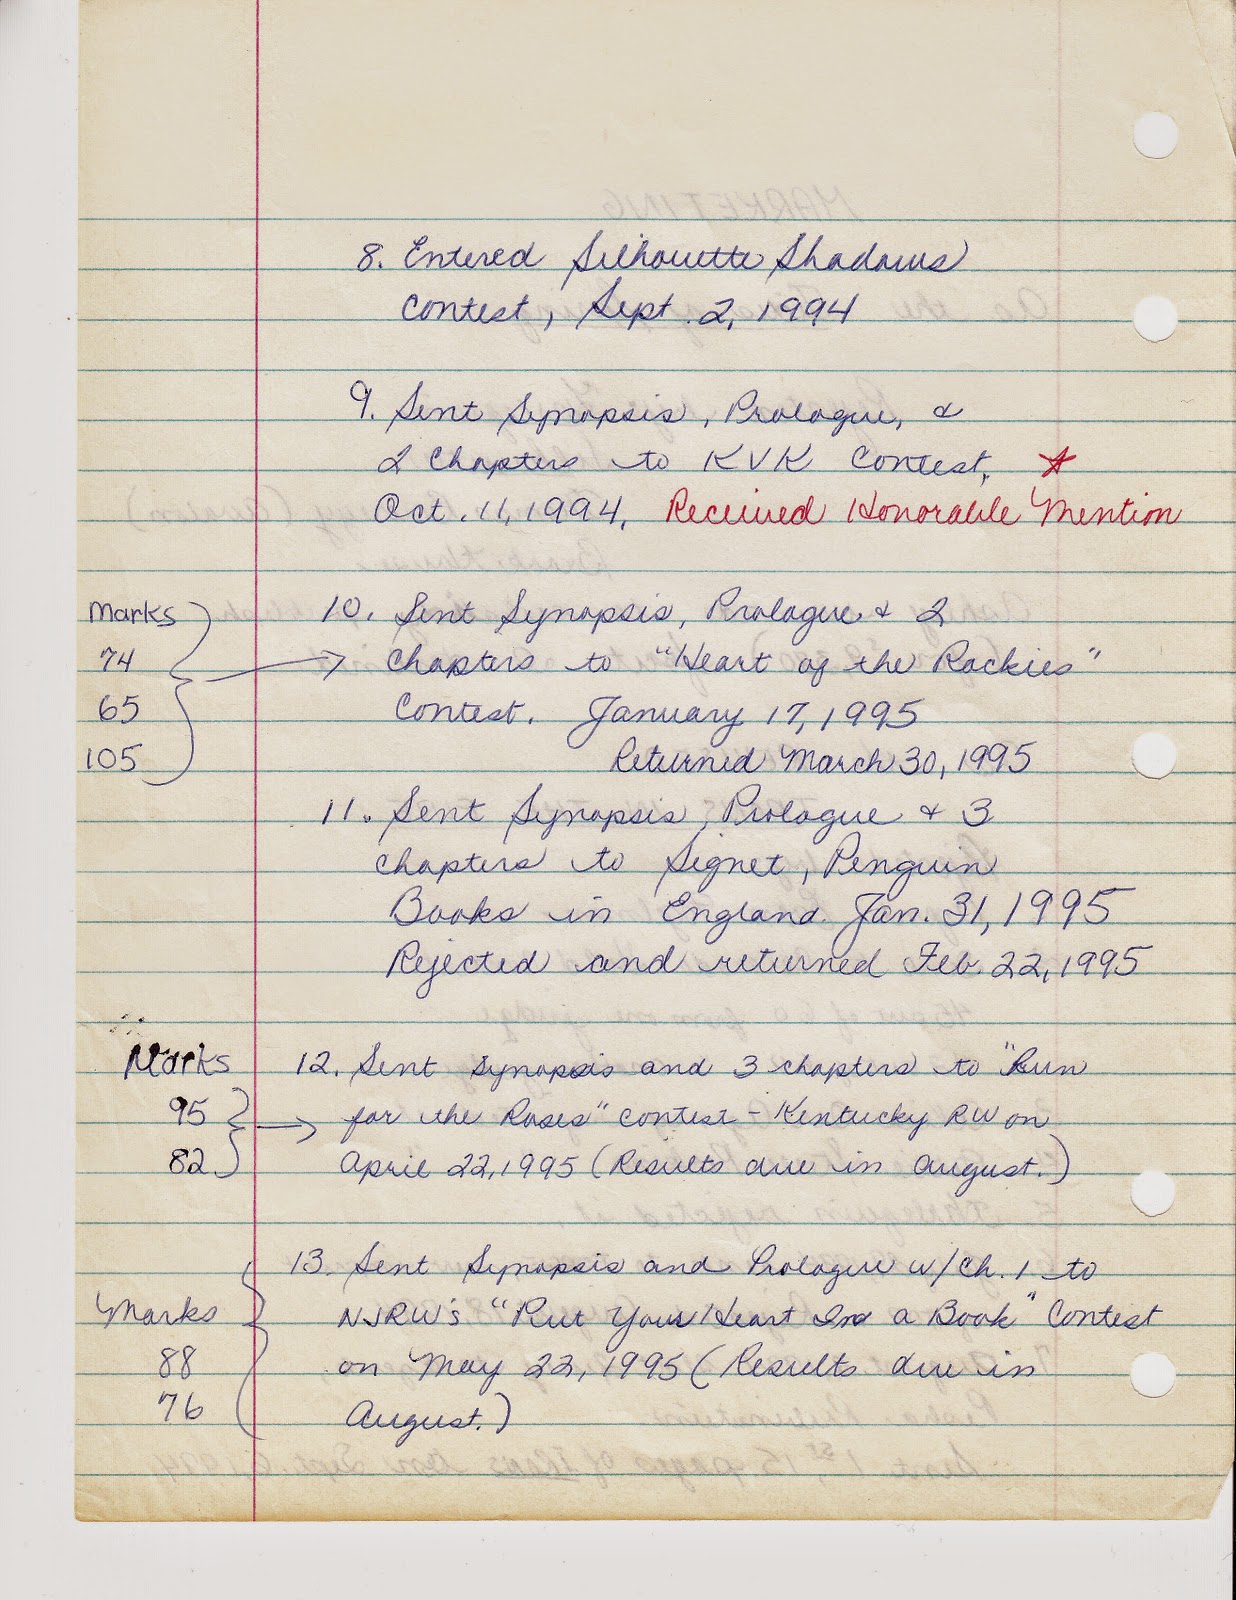 8. Entered Silhouette Shadows
Contest, Sept. 2, 1994
9. Sent Synopsis, Prologue, &
2 Chapters to KVK Contest,
Oct. 11, 1994. Received Honorable Mention
Marks
74
65
105
10. Sent Synopsis, Prologue & 2
Chapters to "Heart of the Rockies"
Contest. January 17, 1995
Returned March 30, 1995
11. Sent Synopsis, Prologue & 3
chapters to Signet, Penguin
Books in England. Jan. 31, 1995
Rejected and returned Feb. 22, 1995
Marks
95
82
12. Sent Synopsis and 3 chapters to "Run
for the Roses" contest - Kentucky RW on
April 22, 1995 (Results due in August.)
Marks
88
76
13. Sent Synopsis and Prologue w/Ch. 1 to
NJRW's "Put Your Heart In a Book" Contest
on May 22, 1995 (Results due in
August.)